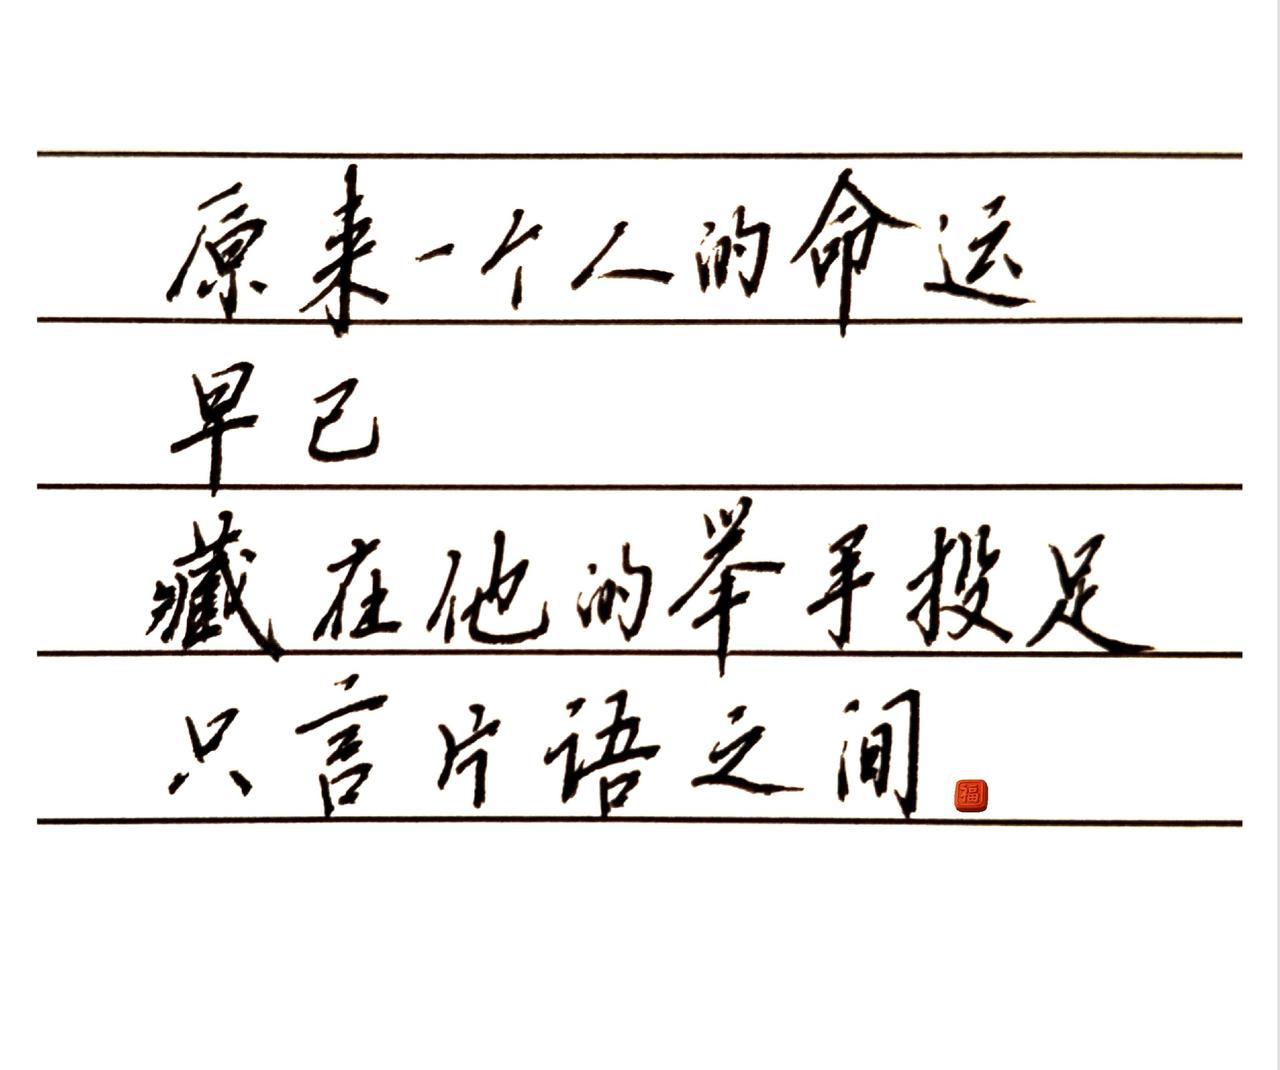 原来一个人的命运
早已
藏在他的举手投足
只言片语之间
福